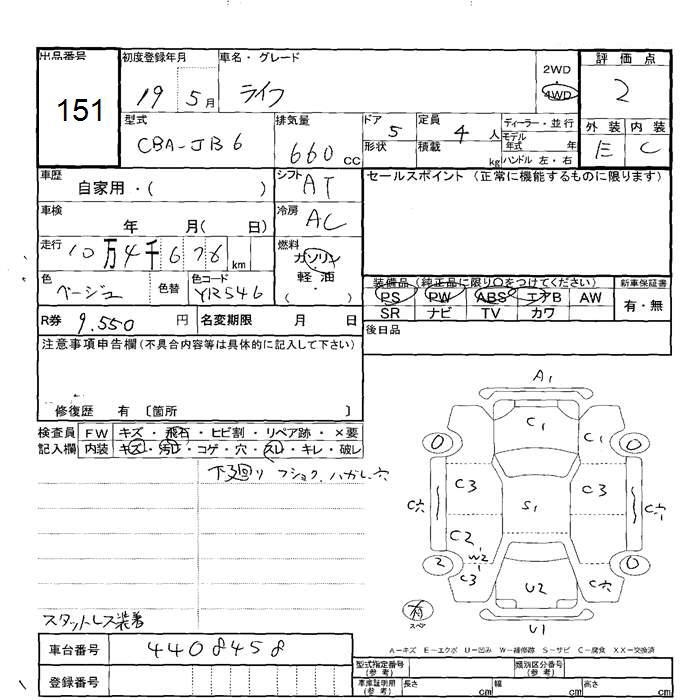 出品番号 初度登録年月 車名・グレード 2WD 4WD 評価点
151 19 5月 ライフ 2
型式 排気量 ドア 5 定員 4人 ディーラー・並行 外装 内装
CBA-JB6 660cc 形状 積載 kg モデル年式 年 ハンドル 左・右 E C
車歴 自家用・( ) シフト AT セールスポイント(正常に機能するものに限ります)
車検 年 月( 日) 冷房 AC
走行 10万4千676km 燃料 ガソリン
軽油・( )
色 ベージュ 色替 色コード YR546 装備品(純正品に限り〇をつけてください) 新車保証書
PS PW ABS エアB AW 有・無
SR ナビ TV カワ
R券 9.550円 名変期限 月 日 後日品
注意事項申告欄(不具合内容等は具体的に記入して下さい)
修復歴 有〔箇所 〕
検査員 FW キズ・飛石・ヒビ割・リペア跡・×要
記入欄 内装 キズ・汚れ・コゲ・穴・スレ・キレ・破レ
下廻り フショク、ハガレ、穴
A1
C1 C1
0 0
C3 C3
C穴 S1 C穴
C2
W2
2 C3 0
U2 C穴
有
スペ
U1
スタットレス装着
A-キズ E-エクボ U-凹み W-補修跡 S-サビ C-腐食 XX-交換済
車台番号 4408458
登録番号
型式指定番号(参考) 類別区分番号(参考)
車庫証明用(参考) 長さ cm 幅 cm 高さ cm